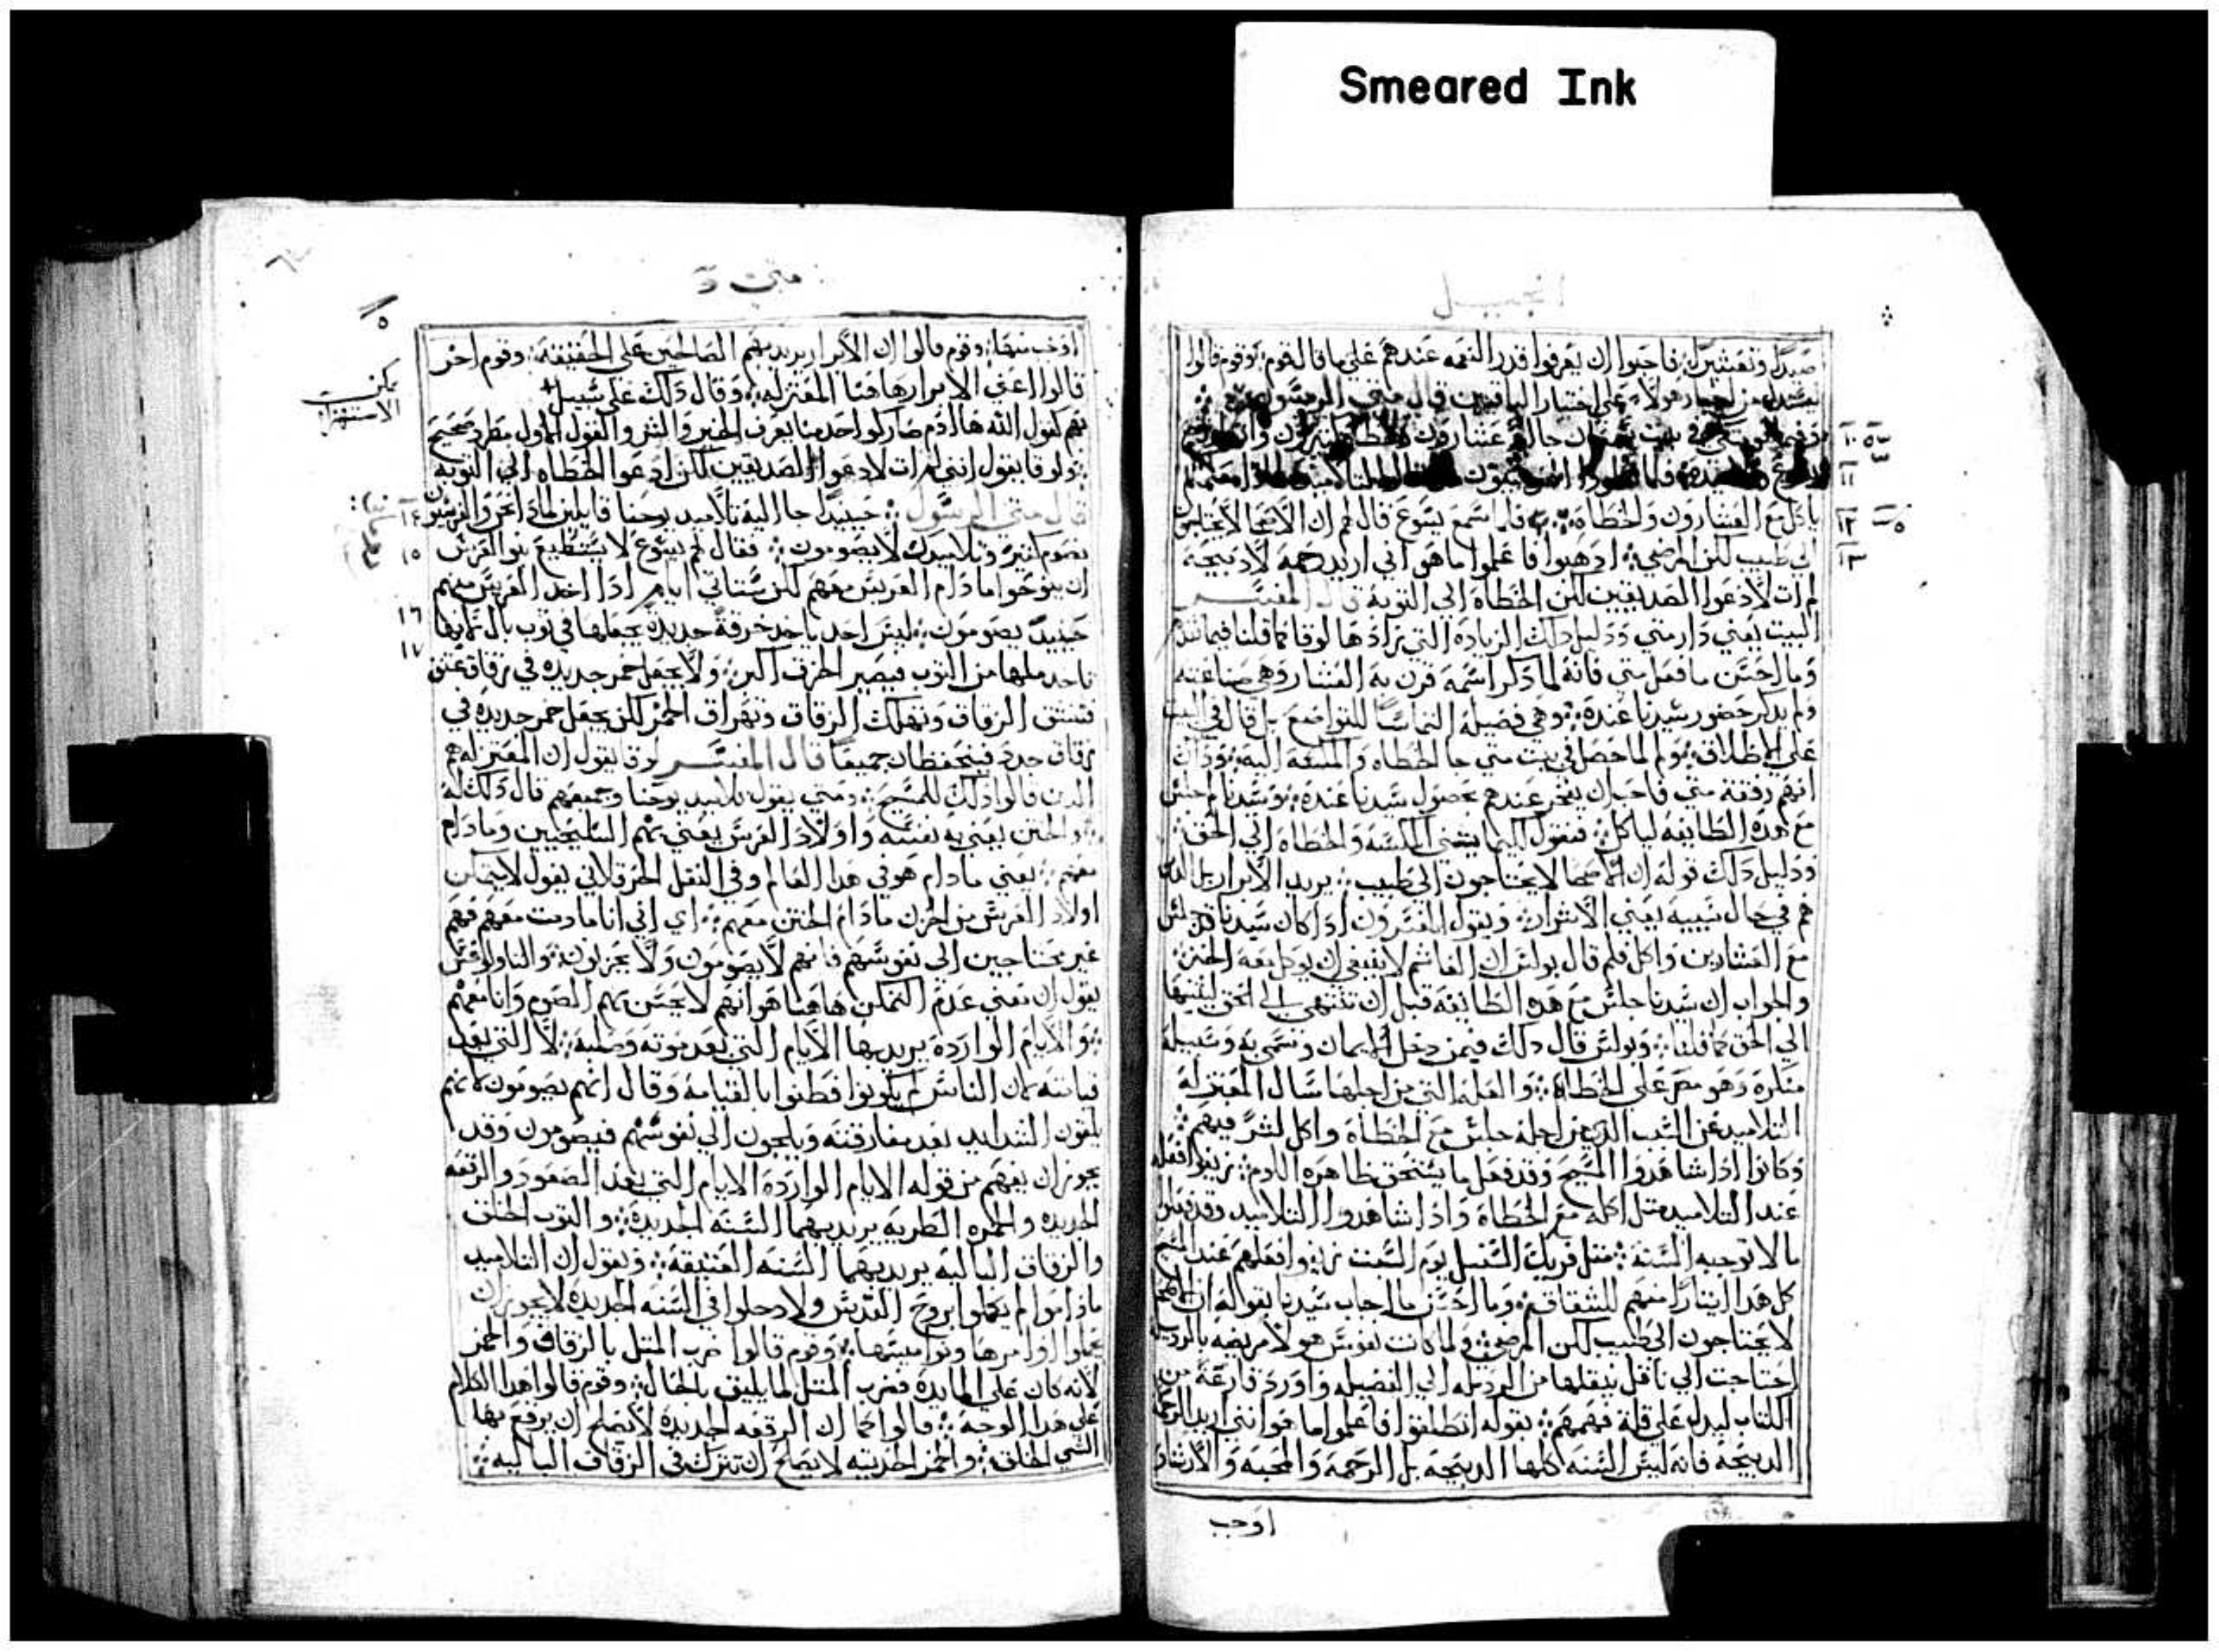 Smeared Ink
انجيل
صيدا وتعشيرا فاحبوا ان يعرفوا قدر النعمه عندهم على ما قال لقوم وقوم قالوا
على اختيار الباقيين قال متى الرسول
في بيت جا عشارون وخطاه كثيرون
فلما
ياكل مع العشارون والخطاه فلما سمع يسوع قال لهم ان الاصحا لا يحتاجون
الي طبيب لكن المرضي ادهبوا فاعلموا ما هو اني اريد رحمة لا دبيحة
لم ات لادعوا الصديقين لكن الخطاه الي التوبة قال المفسر
البيت يعني دار متي ودليل دلك الزيادة التي زادها لوقا كما قلنا فيما تقدم
وما احسن ما فعل متي فانه لما دكر اسمه قرن به العشار وهي صناعته
ولم يدكر حضور سيدنا عنده وهي فضيلة التماسا للتواضع بل قال في البيت
علي الاطلاق ولما حصل في بيت متي جا الخطاه والمتعه اليه وداك
انهم رفقة متي فاحب ان يفخر عندهم بحصول سيدنا عنده وسيدنا لم جلس
مع هده الطايفة لياكل فنقول كيما يثني المكسه والخطاه الي الحق
ودليل دلك قوله ان الاصحا لا يحتاجون الي طبيب يريد الابرار بل الدين
هم في حال سيية يعني الاشرار ويقول المفسرون ادا كان سيدنا قد جلس
مع العشارين واكل فلم قال بولس ان الفاسق لا ينبغي ان يوكل معه الخبز
والجواب ان سيدنا جلس مع هده الطايفة قبل ان تنتهي الي الحق ليثنيها
الي الحق كما قلنا وبولس قال دلك فيمن دخل الايمان وتسمي به وسبيله
منكره وهو مصر علي الخطاه والعلة التي من اجلها سال المعتزله
التلاميد عن السبب الدي من اجله جلس مع الخطاه واكل لشر فيهم
وكانوا ادا شاهدوا المسيح وقد فعل ما يستحق بظاهره اللدم زيفوا فعله
عند التلاميد مثل اكله مع الخطاه واذا شاهدوا التلاميد وقد فعلوا
مالا توجبه السنة مثل فريك السنبل يوم السبت زيفوا فعلهم عند المسيح
كل هدا ايثارا منهم للشقاق وما احسن ما اجاب سيدنا بقوله ان الاصحا
لا يحتاجون الي طبيب لكن المرضي ولما كانت نفوس هولا مريضة بالرديله
احتاجت الي ناقل ينقلها من الرديله الي الفضيله واورد قارعة من
الكتاب ليدل علي قلة فهمهم بقوله انطلقوا فاعلموا ما هو انني اريد الرحمة لا
الدبيحة فانه ليس السنه كلها الدبيحة بل الرحمة والمحبة والارشاد
اوجب
١٠
١١
١٢
١٣
متى
٥
يمكن
الاستهزا
اوجب منها وقوم قالوا ان الابرار يريد بهم الصالحين علي الحقيقة وقوم اخر
قالوا اعني الابرار هاهنا المعتزله وقال دلك علي سبيل
كقول الله ها ادم صار كواحد منا يعرف الخير والشر والقول الاول مطرد صحيح
ولوقا يقول انني لم ات لادعوا الصديقين لكن ادعوا الخطاه الي التوبة
قال متي الرسول حينيدا جا اليه تلاميد يوحنا قايلين لمادا نحن والفريسيون
نصوم كثير وتلاميدك لا يصومون فقال لهم يسوع لا يستطيع بنو العرس
ان ينوحوا ما دام العريس معهم لكن ستاتي ايام ادا اخد العريس منهم
حينيدا يصومون ليس احد ياخد خرقة جديدة يجعلها في توب بال
ملها من التوب فيصير الخرق اكبر ولا يجعل خمر جديده في زقاق عتق
فتنشق الزقاق وتهلك الزقاق وتهراق الخمر لكن يجعل خمر جديده في
زقاق جدد فينحفظان جميعا قال المفسر لوقا يقول ان المعتزله هم
الدين قالوا دلك للمسيح ومتي يقول تلاميد يوحنا وجميعهم قال دلك له
والختن يعني به نفسه واولاد العرس يعني بهم السليحيين ومادام
معهم يعني مادام هو في هدا العالم وفي النقل الحرقلاني يقول لا يتمكن
اولاد العرس من الحزن مادام الختن معهم اي اني انا مادمت معهم فهم
غير محتاجين الي نفوسهم فانهم لا يصومون ولا يحزنون والتاولوغس
يقول ان معني عدم التمكن هاهنا هو انهم لا يحسن بهم الصوم وانا معهم
والايام الواردة يريد بها الايام التي بعد موته وصلبه لا التي بعد
قيامته لان الناس لم يكونوا فطنوا بالقيامة وقال انهم يصومون لانهم
يلقون الشدايد بعد مفارقته ويلجون الي نفوسهم فيصومون وقد
يجوز ان يفهم من قوله الايام الواردة الايام التي بعد الصعود والرقعه
الجديده والخمره الطريه يريد بهما السنه الجديدة والتوب الخلق
والزقاق الباليه يريد بهما السنه العتيقة ويقول ان التلاميد
ماداموا لم يكملوا بروح القدس ولا دخلوا في السنه الجديدة لا يجوز ان
يحملوا اوامرها ونواميسها وقوم قالوا ضرب المتل بالزقاق والخمر
لانه كان علي المايدة فضرب المتل لما يليق بالحال وقوم قالوا هدا الكلام
علي هدا الوجه قالوا كما ان الرقعه الجديدة لا يصلح ان يرقع بها
الشي الخلق والخمر الطريه لا يصلح ان تترك في الزقاق الباليه
١٤
١٥
١٦
١٧